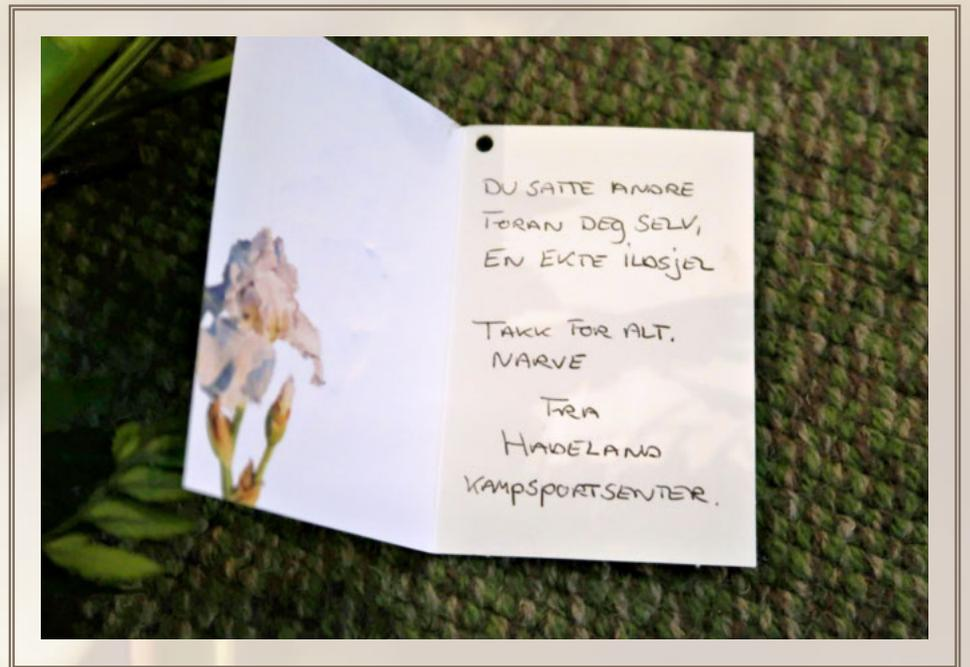 DU SATTE ANDRE
FORAN DEG SELV,
EN EKTE ILDSJEL
TAKK FOR ALT.
NARVE
FRA
HADELAND
KAMPSPORTSENTER.